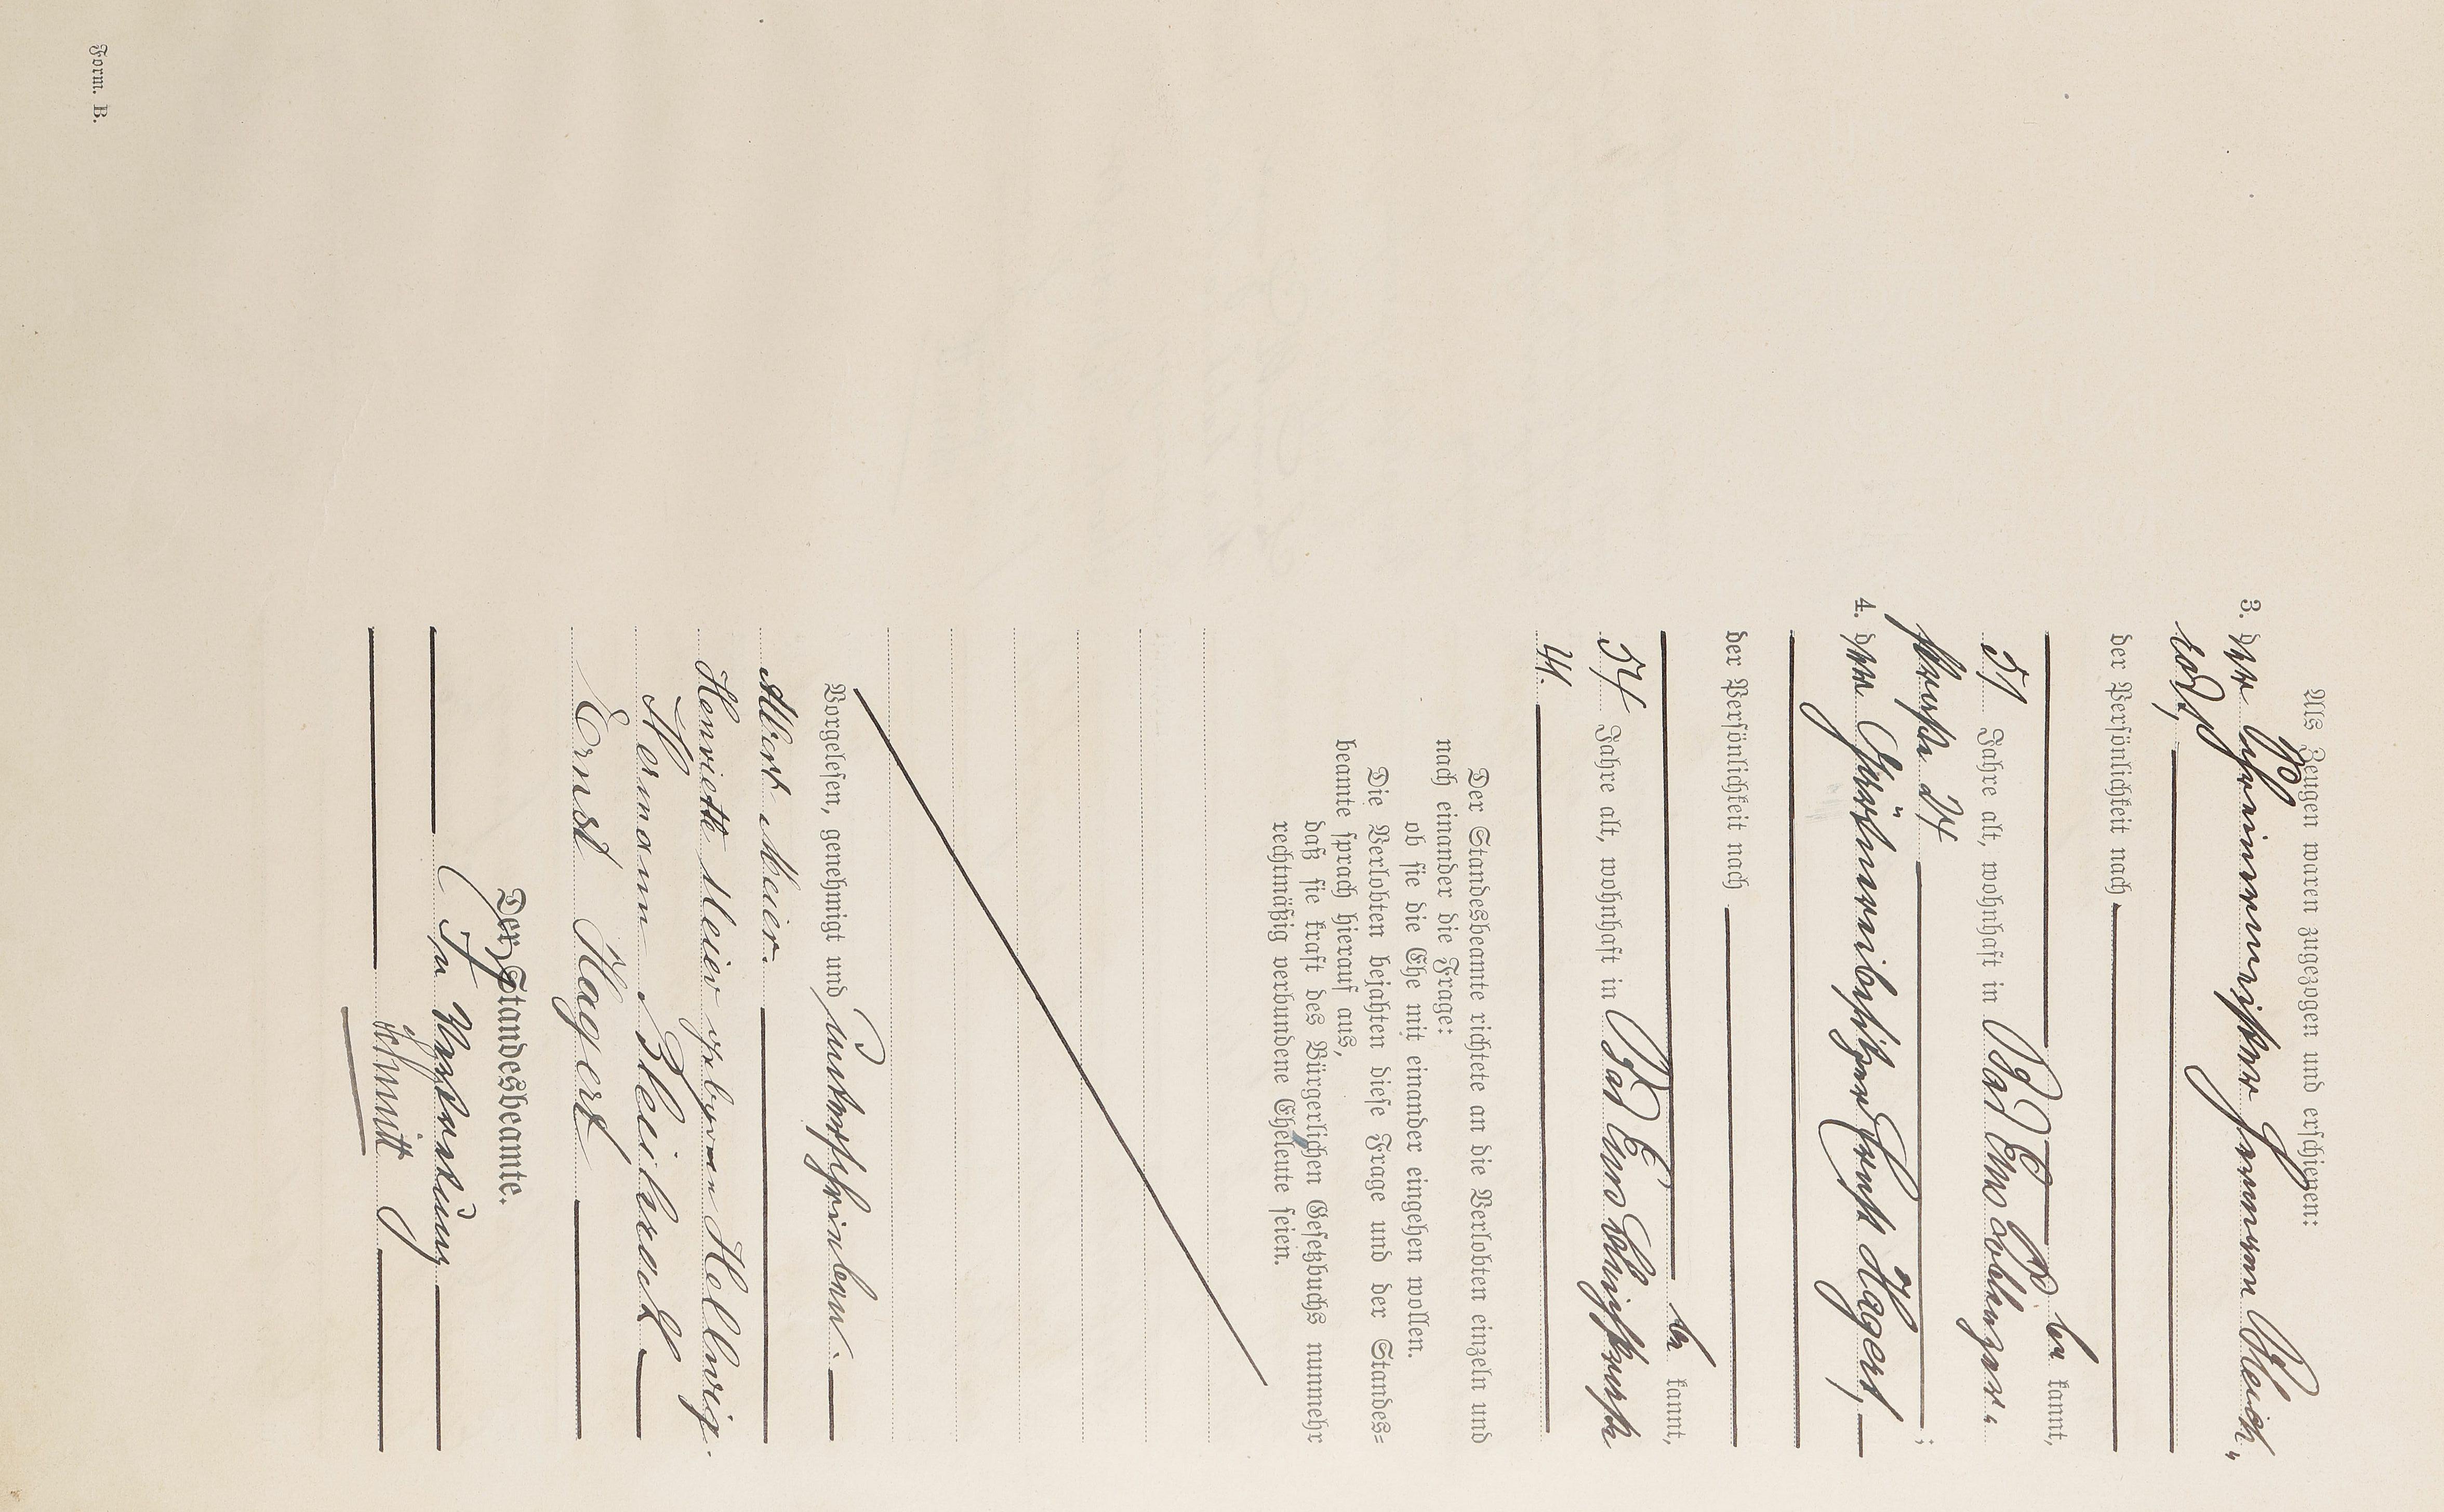 Als Zeugen waren zugezogen und erschienen:
3. der Schreinermeister Hermann Bleich-
rodt,
der Persönlichkeit nach
be kannt,
51 Jahre alt, wohnhaft in Bad Ems Coblenzer-
strasse 24 ;
4. der Gasthausbesitzer Ernst Hagert,
der Persönlichkeit nach
be kannt,
54 Jahre alt, wohnhaft in Bad Ems
4.
Der Standesbeamte richtete an die Verlobten einzeln und
nach einander die Frage:
ob sie die Ehe mit einander eingehen wollen.
Die Verlobten bejahten diese Frage und der Standes-
beamte sprach hierauf aus,
daß sie kraft des Bürgerlichen Gesetzbuchs nunmehr
rechtmäßig verbundene Eheleute seien.
Vorgelesen, genehmigt und unterschrieben.
Albert Meier.
Henriette Meier geborene Hellwig.
Hermann Bleichrodt
Ernst Hagert
Der Standesbeamte.
In Vertretung
Schmitt
Form. B.